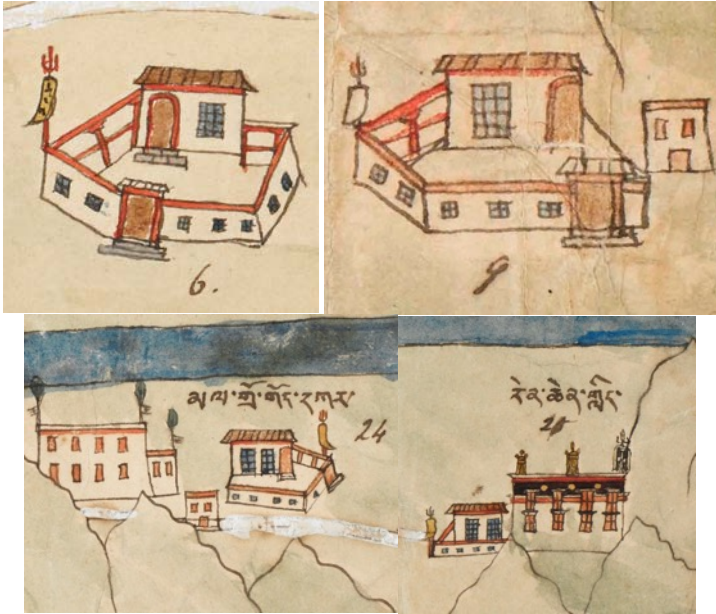 6.
9
མལ་གྲོ་གོང་དཀར་
24
རིན་ཆེན་གླིང་